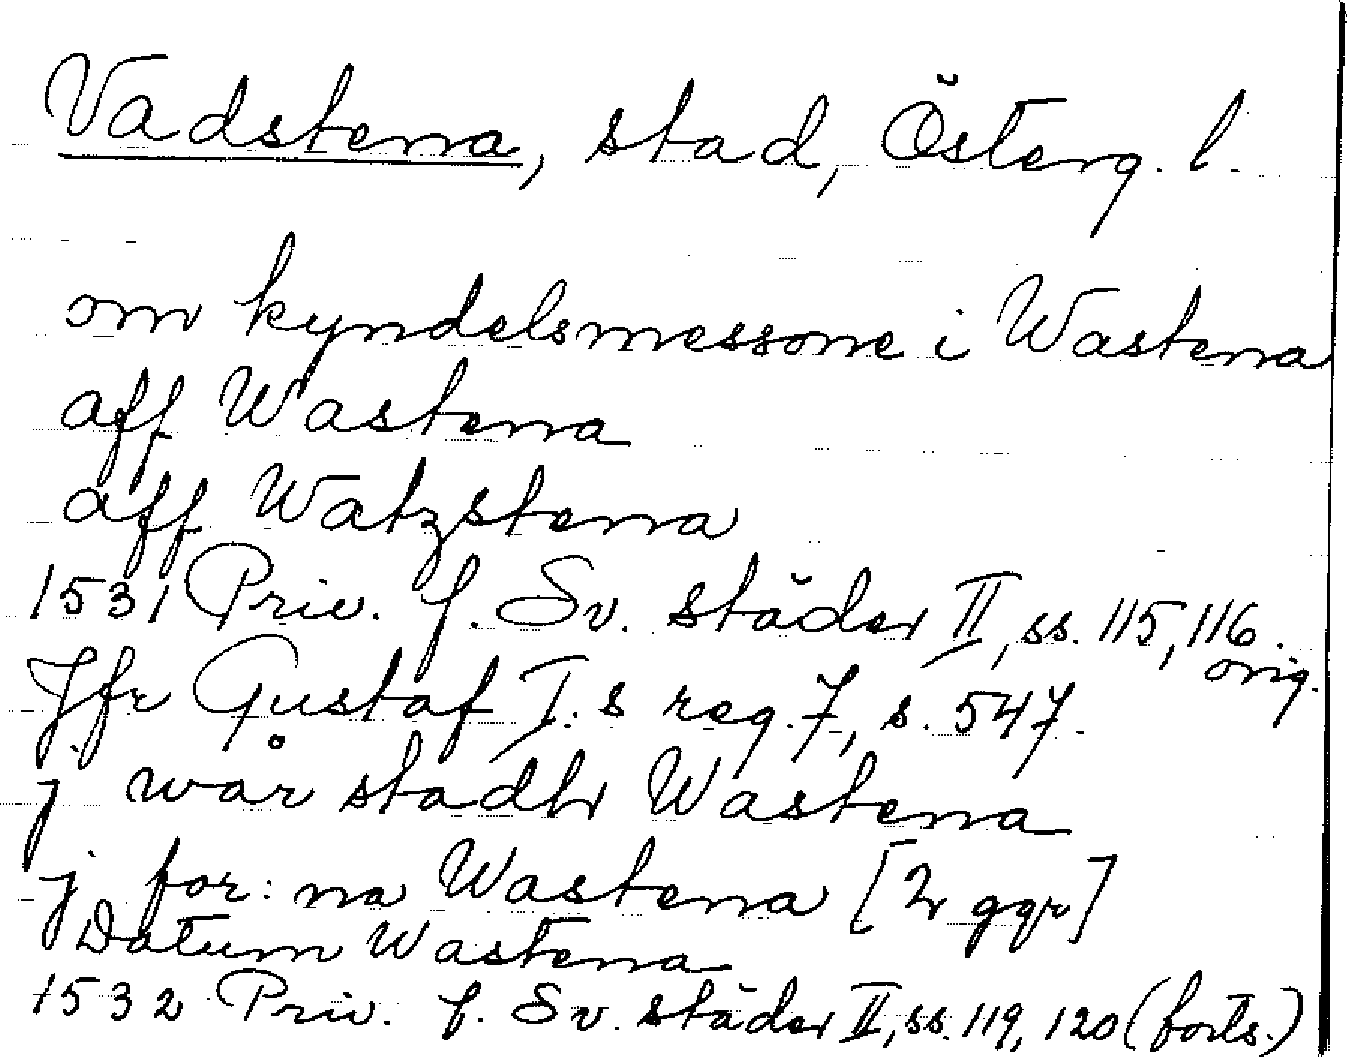 Vadstena, stad, Österg. l.
om kyndelsmessone i Wastena
aff Wastena
aff Watzstena
1531 Priv. f. Sv. städer II, ss. 115, 116.
orig.
Jfr Gustaf I:s reg. 7, s. 547.
j wår stadh Wastena
j for:na Wastena [2 ggr]
Datum Wastena
1532 Priv. f. Sv. städer II, ss. 119, 120 (forts.)